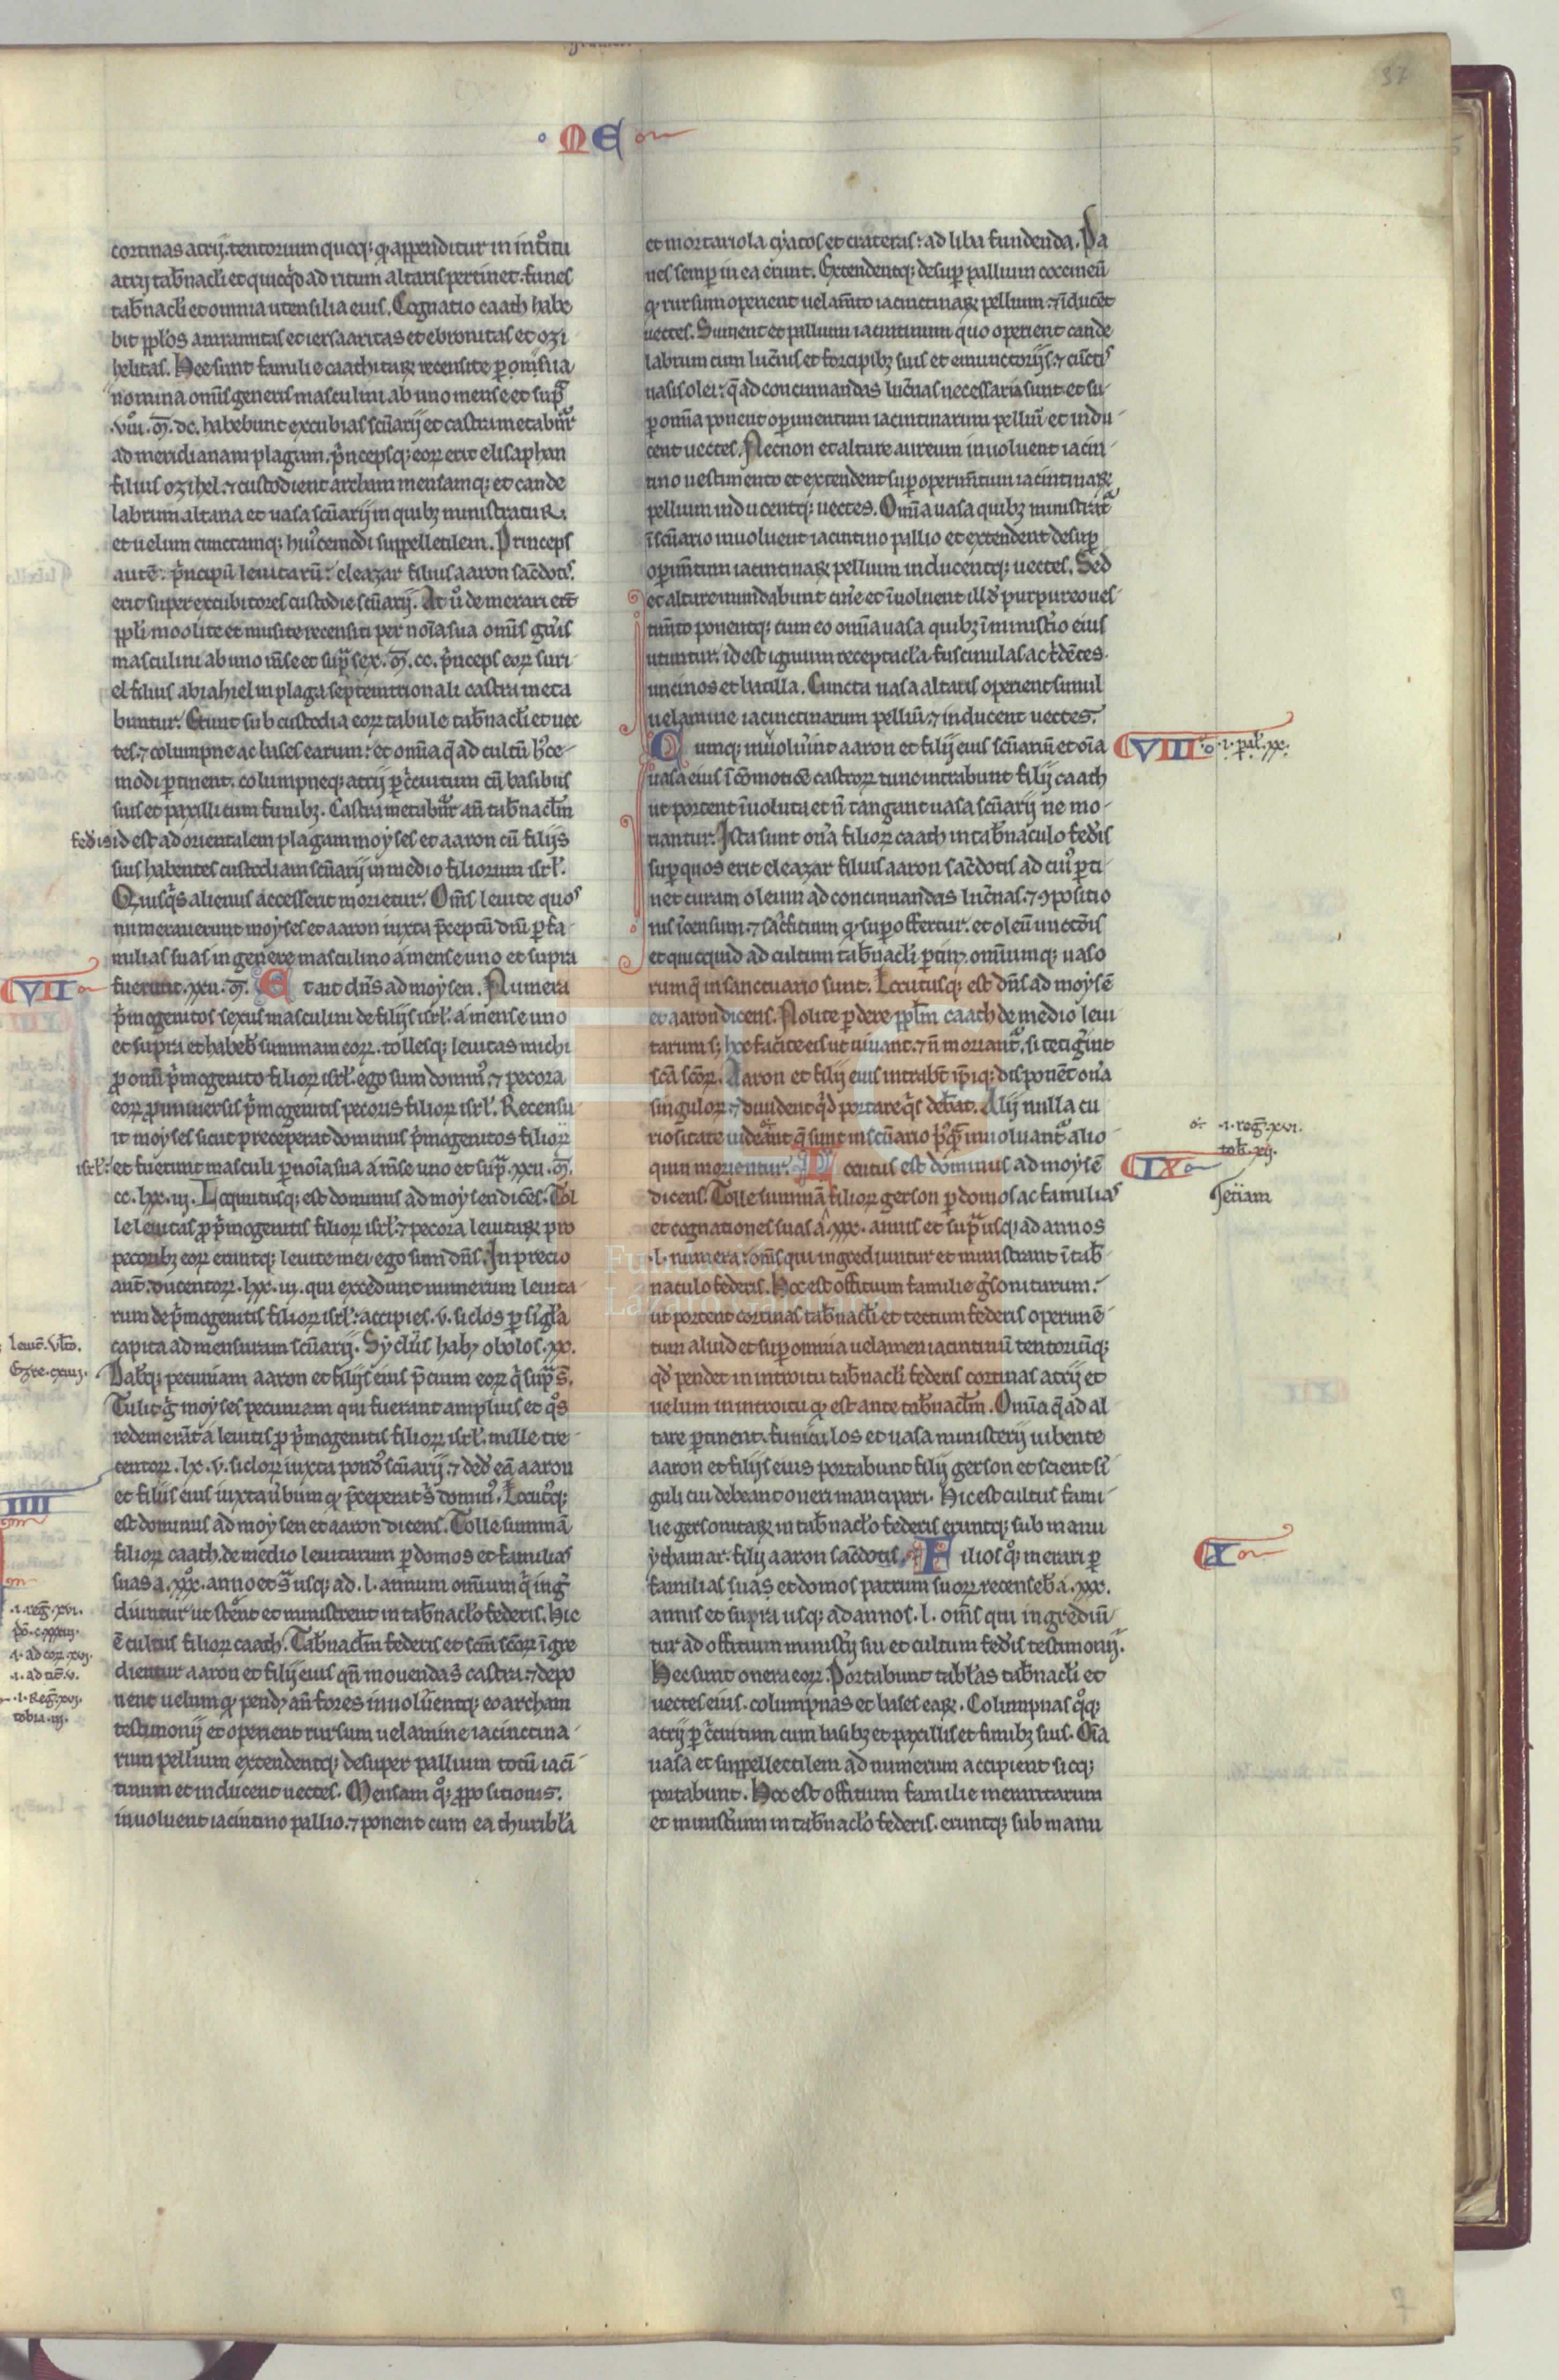 37
ME
cortinas atrij. tentorium quoq; qđ appenditur in int͛oitu
atrij tab̄nacl̄i et quicq͛d ad ritum altaris pertinet. funes
tab̄nacl̄i et omnia utensilia eius. Cognatio caath habe
bit pp̄l̄os amramitas et iersaaritas et ebronitas et ozi
helitas. Hee sunt familie caathitaꝝ recensite ꝑ om̄ia sua
nomina om̄is generis masculini. ab uno mense et sup͛
.viii. m̄. dc. habebunt excubias sc̄uarij et castrametabūr͛
ad meridianam plagam. p͛ncepsq; eoꝝ erit elisaphan
filius ozihel. ⁊ custodient archam mensamq; et cande
labrum altaria et uasa sc̄uarij in quibꝫ ministratur.
et uelum cunctamq; hui͛cemodi suppellectilem. Princeps
autē. p͛ncipū leuitarū. eleazar filius aaron sac̄dotis.
erit super excubitores custodie sc̄uarij. At u͛o de merari er̄t
pp̄l̄i moolite et musite recensiti per noīa sua om̄is gn͛is
masculini ab uno m̄se et sup͛ sex. m̄. cc. p͛nceps eoꝝ suri
el filius abiahiel in plaga septemtrionali castra meta
buntur. Erunt sub custodia eoꝝ tabule tab̄nacl̄i et uec
tes. ⁊ columpne ac bases earum. et om̄ia q̄ ad cultū h͛ce-
modi ꝑtinent. columpneq; atrij ꝑ c͛cuitum cū basibus
suis et paxilli cum funibꝫ. Castra metabūr͛ an̄ tab̄nacl̄m
fed͛is id est ad orientalem plagam moyses et aaron cū filijs
suis habentes custodiam sc̄uarij in medio filiorum isrl̄.
Quisq͛s alienus accesserit morietur. Om̄s leuite quos
numerauerunt moyses et aaron iuxta p̄ceptū dn̄i ꝑ fa
milias suas in genere masculino a mense uno et supra
fuerunt. xxii. m̄. Et ait dn̄s ad moysen. Numera
VII
p͛mogenitos sexus masculini de filijs isrl̄. a mense uno
et supra et habeb͛ summam eoꝝ. tollesq; leuitas michi
ꝓ omī p͛mogenito filioꝝ isrl̄. ego sum domin͛. ⁊ pecora
eoꝝ ꝓ uniuersis p͛mogenitis pecoris filioꝝ isrl̄. Recensu
it moyses sicut preceperat dominus p͛mogenitos filioꝝ
isrl̄. et fuerunt masculi ꝑ noīa sua a m̄se uno et sup͛. xxii. m̄.
cc. lxx. iii. Loquutusq; est dominus ad moysen dicēs. Tol
le leuitas ꝓ p͛mogenitis filioꝝ isrl̄. ⁊ pecora leuitaꝝ pro
pecoribꝫ eoꝝ eruntq; leuite mei. ego sum dn̄s. In precio
aut̄. ducentoꝝ. lxx. iii. qui excedunt numerum leuita
rum de p͛mogenitis filioꝝ isrl̄. accipies. v. siclos ꝑ sīgl̄a
leuit̄. vlt̄o.
capita ad mensuram sc̄uarij. Syclus habꝫ obolos. xx.
Ezre. cxiij.
Dabq; pecuniam aaron et filijs eius p̄cium eoꝝ q͛ sup͛ s̄.
Tulit g͛ moyses pecuniam qui fuerant amplius et q͛s
redemerāt a leuitis ꝓ p͛mogenitis filioꝝ isrl̄. mille tre-
centoꝝ. lx. v. sicloꝝ iuxta pond͛ sc̄uarij. ⁊ ded͛ eā aaron
et filijs eius iuxta u͛bum qđ p̄ceperat s͛ domin͛. Locut͛q;
IIII
est dominus ad moysen et aaron dicens. Tolle summā
filioꝝ caath. de medio leuitarum ꝑ domos et familias
suas a. xxx. anno et s͛ usq; ad. l. annum omnium q͛ ing͛
diuntur ut stent et ministrent in tab̄nacl̄o federis. Hic
.i. reg̃. xvi.
ē cultus filioꝝ caath. Tab̄nacl̄m federis et sc̄m sc̄oꝝ īgre
.i. ad coꝝ. xvi.
dientur aaron et filij eius qn̄ mouenda s̄ castra. ⁊ depo
.i. ad tim̄. v.
nent uelum qđ pendꝫ an̄ fores inuolūentq; eo archam
.i. Reg̃. xvi.
tobia. iii.
testimonij et operient rursum uelamine iacinctina-
rum pellium extendentq; desuper pallium totū iacī-
tinum et inducent uectes. Mensam q͛q; ꝓpositionis.
inuoluent iacintino pallio. ⁊ ponent cum ea thuribl̄a
et mortariola cyatos et crateras. ad liba fundenda. Pa
nes semꝑ in ea erunt. Extendentq; desuꝑ pallium coccineū
qđ rursum operient uelam̄to iacinctinaꝝ pellium. ⁊ īducēt
uectes. Sument et pallium iacintinum quo operient cande
labrum cum lucn̄is et forcipibꝫ suis et emunctorijs. ⁊ cūctis
uasis olei. q̄ ad concinnandas lucn̄as necessaria sunt. et su-
ꝑ om̄ia ponent operimentum iacintinarum pelliū et indu-
cent uectes. Necnon et altare aureum inuoluent iacin-
tino uestimento et extendent suꝑ operim̄tum iacintinaꝝ
pellium inducentq; uectes. Om̄ia uasa quibꝫ ministrat͛
ī sc̄uario inuoluent iacintino pallio et extendent desuꝑ
oꝑim̄tum iacintinaꝝ pellium inducentq; uectes. Sed
et altare mundabunt cin͛e et īuoluent illd͛ purpureo ues-
tim̄to ponentq; cum eo om̄ia uasa quibꝫ ī minist͛io eius
utuntur. id est ignium receptacl̄a. fuscinulas ac t͛dētes.
uncinos et batilla. Cuncta uasa altaris operient simul
uelamine iacinctinarum pelliū. ⁊ inducent uectes.
Cumq; inuolu͛int aaron et filij eius sc̄uariū et oīa
VIII .i. paral̄. xx.
uasa eius ī cōmotiōe castroꝝ tunc intrabunt filij caath
ut portent īuoluta et n̄ tangant uasa sc̄uarij ne mo-
riantur. Ista sunt on͛a filioꝝ caath in tab̄naculo fed͛is
suꝑ quos erit eleazar filius aaron sac̄dotis ad cui͛ ꝑti
net curam oleum ad concinnandas lucn̄as. ⁊ ꝯpositio
nis īcensum. ⁊ sac͛fitium qđ suꝑ offertur. et oleū unctōis
et quicquid ad cultum tab̄nacl̄i ꝑtinꝫ. omniumq; uaso
rumq̄ in sanctuario sunt. Locutusq; est dn̄s ad moysē
et aaron dicens. Nolite ꝑdere pp̄l̄m caath de medio leui
tarum sꝫ hoc facite eis ut uiuant. ⁊ n̄ moriant͛. si tetig͛int
sc̄a sc̄oꝝ. Aaron et filij eius intrabt̄ ip̄iq; disponēt on͛a
singuloꝝ. ⁊ diuident q͛d portare q͛s debeat. Alij nulla cu
riositate uideant q̄ sunt in sc̄uario p͛usq͛ inuoluant͛ alio
.i. reg̃. xvi.
tob. xij.
quin morientur. Locutus est dominus ad moysē
IX
dicens. Tolle summā filioꝝ gerson ꝑ domos ac familias
etiam
et cognationes suas a. xxx. annis et sup͛ usq; ad annos
.l. numera. om̄s qui ingrediuntur et ministrant ī tab̄
naculo federis. Hoc est offitium familie g͛sonitarum.
ut portent cortinas tab̄nacl̄i et tectum federis operimē-
tum aliud et suꝑ omnia uelamen iacintinū tentoriūq;
qđ pendet in introitu tab̄nacl̄i federis cortinas atrij et
uelum in introitu qđ est ante tab̄nacl̄m. Om̄ia q̄ ad al
tare ꝑtinent. funiculos et uasa ministerij iubente
aaron et filijs eius portabunt filij gerson et scient sī
guli cui debeant oneri mancipari. Hic est cultus fami-
lie gersonitaꝝ in tab̄nacl̄o federis eruntq; sub manu
ythamar. filij aaron sac̄dotis. Filios q͛q; merari ꝑ
X
familias suas et domos patrum suoꝝ recenseb͛ a. xxx.
annis et supra usq; ad annos. l. om̄s qui ingrediū-
tur ad offitium minist͛ij sui et cultum fed͛is testimonij.
Hee sunt onera eoꝝ. Portabunt tabl̄as tab̄nacl̄i et
uectes eius. columpnas et bases eaꝝ. Columpnas q͛q;
atrij ꝑ c͛cuitum cum basibꝫ et paxillis et funibꝫ suis. Oīa
uasa et suppellectilem ad numerum accipient sicq;
portabunt. Hoc est offitium familie meraritarum
et minist͛ium in tab̄nacl̄o federis. eruntq; sub manu
Fundación
Lázaro Galdiano
7